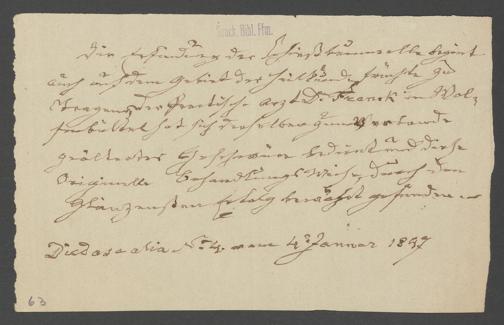 Senck. Bibl. Ffm.
Die Erfindung der Schießbaumwolle beginnt
auch auf dem Gebiet der Heilkunde Früchte zu
tragen, der practische Arzt Dr. Franck in Wol-
fenbüttel hat sich derselben zum Verbande
Geschwüre bedient und diese
Originelle Behandlungs Weise, durch den
Glänzensten Erfolg bewährt gefunden.
Didascalia No. 4. vom 4. Januar 1847
63